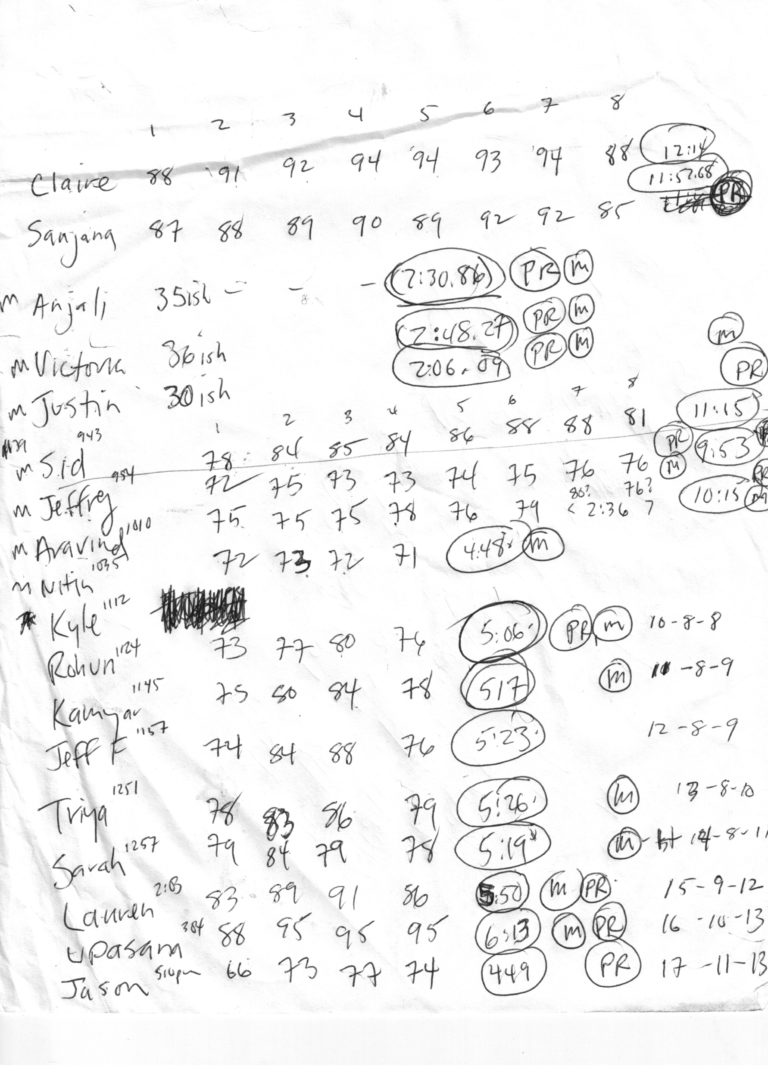 1 2 3 4 5 6 7 8
Claire 88 91 92 94 94 93 94 88 12:14
11:52.68 PR
Sanjana 87 88 89 90 89 92 92 85
m Anjali 35ish - - - 2:30.86 PR m
m Victoria 36ish 2:48.27 PR m
m Justin 30ish 2:06.09 PR m
1 2 3 4 5 6 7 8
m Sid 943 78 84 85 84 86 88 88 81 11:15 m PR
m Jeffrey 954 72 75 73 73 74 75 76 76 9:53 PR m
80? 76?
m Aravind 1010 75 75 75 78 76 79 < 2:36 > 10:15 PR m
m Nitin 1035 72 73 72 71 4:48 m
Kyle 1112
Rohun 1124 73 77 80 76 5:06 PR m 10-8-8
Kamyar 1145 75 80 84 78 517 m 11-8-9
Jeff F 1157 74 84 88 76 5:23 12-8-9
Triya 1251 78 83 86 79 5:26 m 13-8-10
Sarah 1257 79 84 79 78 5:19 m 14-8-11
Lauren 2:03 83 89 91 86 5:50 m PR 15-9-12
Upasana 304 88 95 95 95 6:13 m PR 16-10-13
Jason 510pm 66 73 77 74 449 PR 17-11-13